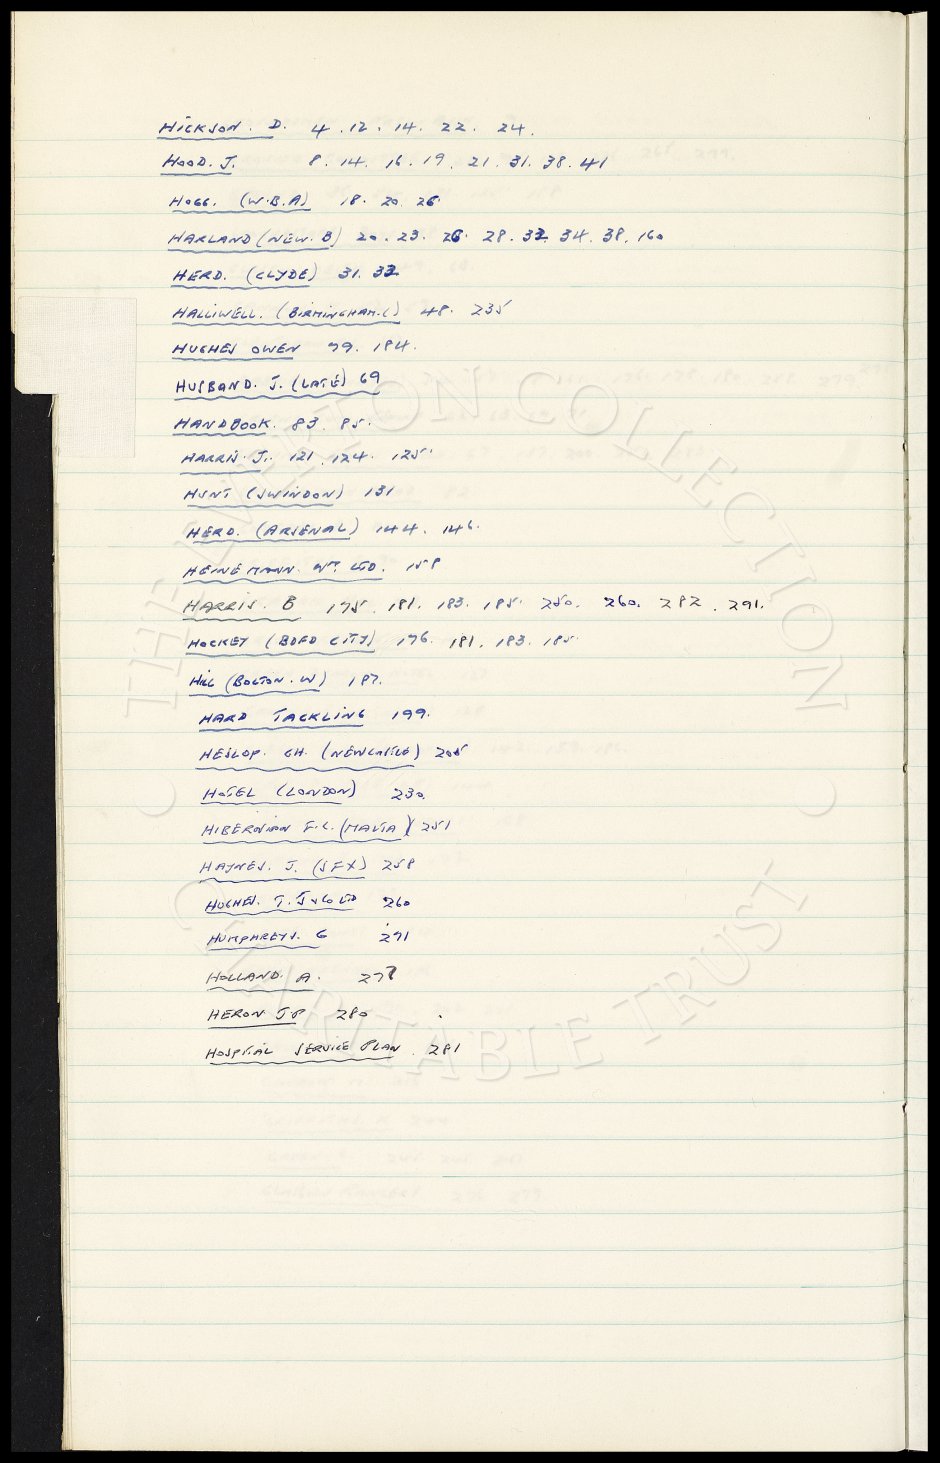 HICKSON. D. 4. 12. 14. 22. 24.
HOOD. J. 8. 14. 16. 19. 21. 31. 38. 41
HOGG. (W.B.A) 18. 20. 26.
HARLAND (NEW. B) 20. 23. 26. 28. 32. 34. 38. 160
HERD. (CLYDE) 31. 32
HALLIWELL. (BIRMINGHAM. C) 48. 235
HUGHES OWEN 79. 184.
HUSBAND. J. (LATE) 69
HANDBOOK. 83. 85.
HARRIS. J. 121. 124. 125.
HUNT (SWINDON) 131
HERD. (ARSENAL) 144. 146.
HEINEMANN. WM. LTD. 158
HARRIS. B 175. 181. 183. 185. 250. 260. 282. 291.
HOCKEY (BDFD CITY) 176. 181. 183. 185.
HILL (BOLTON. W) 187.
HARD TACKLING 199.
HESLOP. GH. (NEWCASTLE) 205
HOTEL (LONDON) 230.
HIBERNIAN F.C. (MALTA) 251
HAYNES. J. (SFX) 258
HUGHES. T. J & CO LTD 260
HUMPHREYS. G 291
HOLLAND. A. 277
HERON JP 280
HOSPITAL SERVICE PLAN. 281
THE MERTON COLLECTION
CHARITABLE TRUST